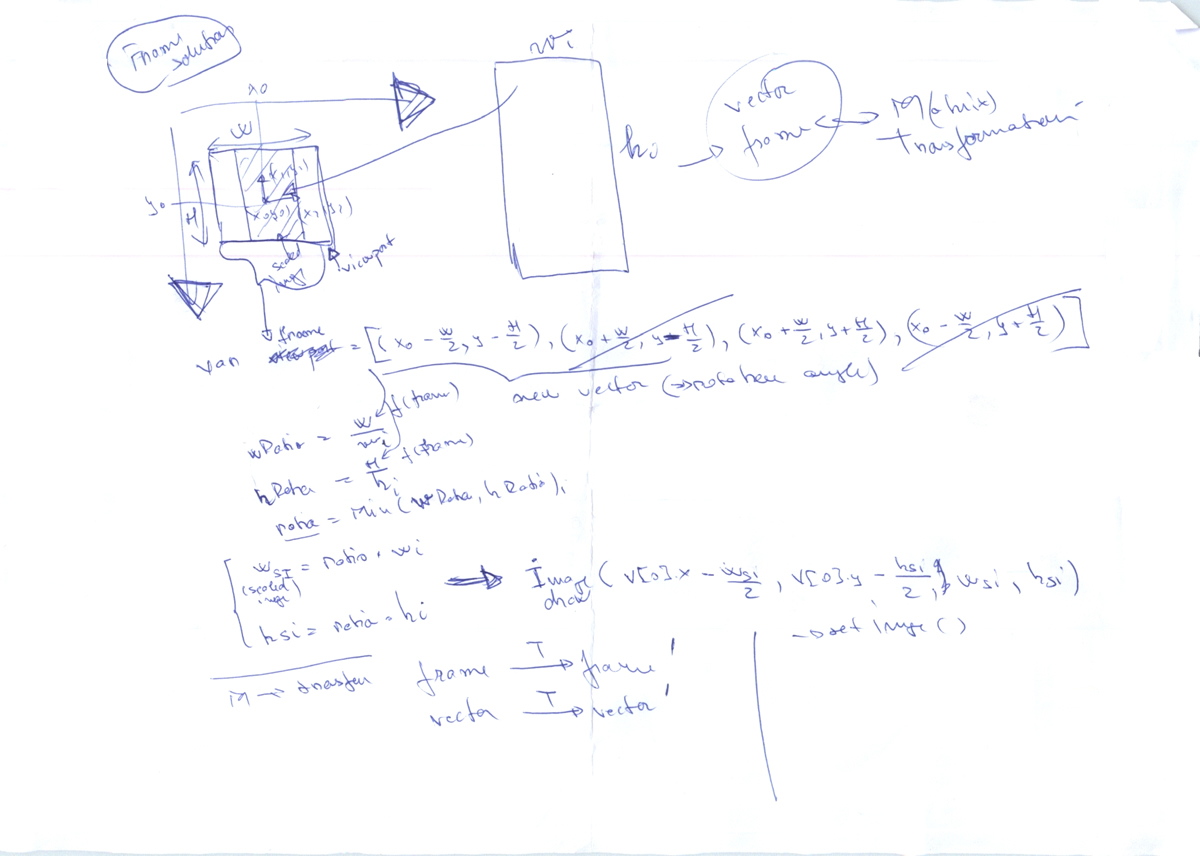 Frame
solution
x0
wi
W
H
y0
(x0,y0)
scaled
image
viewport
hi
vector
frame
M(atrix)
transformation
frame
var = [(x0 - W/2, y - H/2), (x0 + W/2, y - H/2), (x0 + W/2, y + H/2), (x0 - W/2, y + H/2)]
new vector (=> rotation angle)
wRatio = W/wi
f(frame)
hRatio = H/hi
f(frame)
ratio = Min(wRatio, hRatio);
wSI = ratio · wi
(scaled
image)
hsi = ratio · hi
Image
draw
(V[0].x - wsi/2, V[0].y - hsi/2, wsi, hsi)
→ set image()
M → transfer
frame T→ frame'
vector T→ vector'